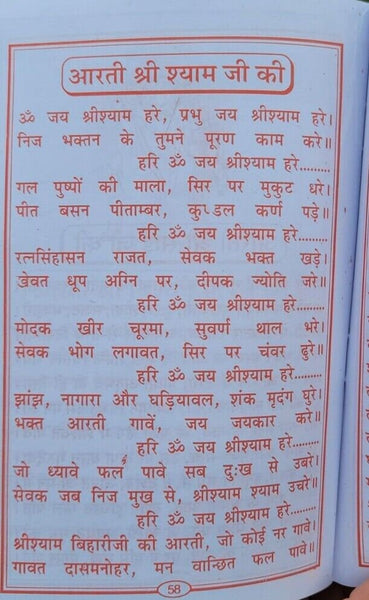 आरती श्री श्याम जी की
ॐ जय श्रीश्याम हरे, प्रभु जय श्रीश्याम हरे।
निज भक्तन के तुमने पूरण काम करे॥
हरि ॐ जय श्रीश्याम हरे.........
गल पुष्पों की माला, सिर पर मुकुट धरे।
पीत बसन पीताम्बर, कुण्डल कर्ण पड़े॥
हरि ॐ जय श्रीश्याम हरे.........
रत्नसिंहासन राजत, सेवक भक्त खड़े।
खेवत धूप अग्नि पर, दीपक ज्योति जरे॥
हरि ॐ जय श्रीश्याम हरे.........
मोदक खीर चूरमा, सुवर्ण थाल भरे।
सेवक भोग लगावत, सिर पर चंवर ढुरे॥
हरि ॐ जय श्रीश्याम हरे.........
झांझ, नागारा और घड़ियावल, शंक मृदंग घुरे।
भक्त आरती गावें, जय जयकार करे॥
हरि ॐ जय श्रीश्याम हरे.........
जो ध्यावे फल पावे सब दुःख से उबरे।
सेवक जब निज मुख से, श्रीश्याम श्याम उचरे॥
हरि ॐ जय श्रीश्याम हरे.........
श्रीश्याम बिहारीजी की आरती, जो कोई नर गावे।
गावत दासमनोहर, मन वान्छित फल पावे॥
58